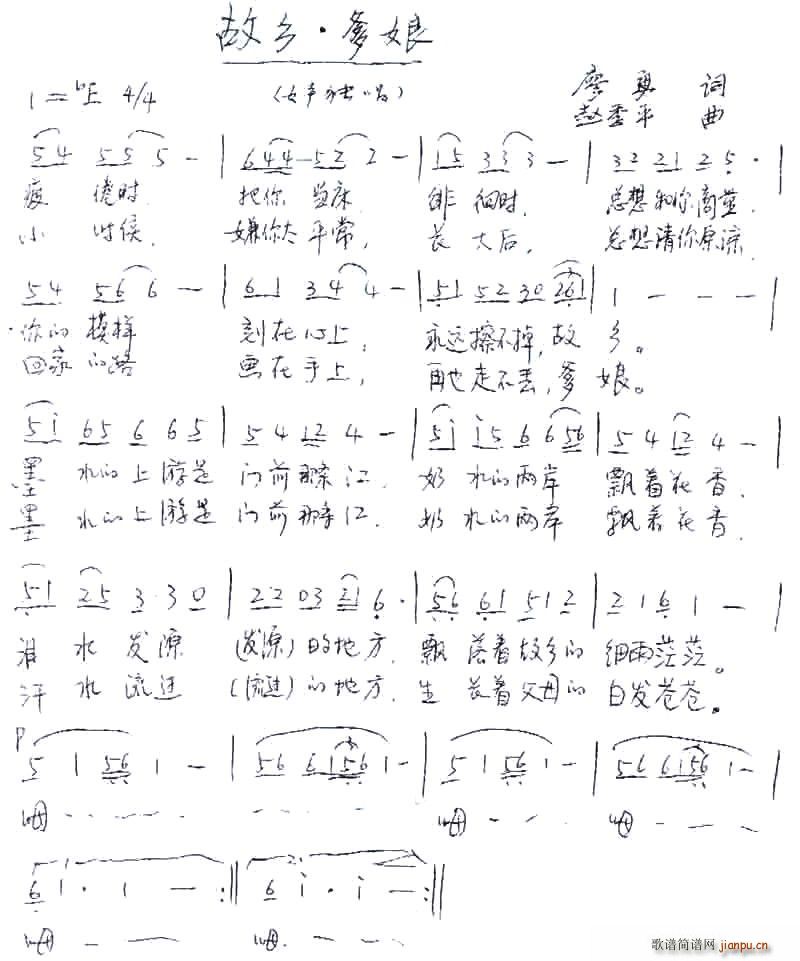 故乡·爹娘
1=♭E 4/4 (女声独唱) 廖勇 词
赵季平 曲
5 4 5 5 5 - | 6 4 4 5 2 2 - | 1 5 3 3 3 - | 3 2 2 1 2 5 · |
疲倦时 把你当床 徘徊时 总想和你商量
小时候 嫌你太平常, 长大后, 总想请你原谅
5 4 5 6 6 - | 6 1 3 4 4 - | 5 1 5 2 3 0 2 6 1 | 1 - - - |
你的模样 刻在心上, 永远擦不掉,故乡。
回家的路 画在手上, 再也走不丢,爹娘。
5 i 6 5 6 6 5 | 5 4 1 2 4 - | 5 i i 5 6 6 5 6 | 5 4 1 2 4 - |
墨水的上游是 门前那条江. 奶水的两岸 飘着花香.
墨水的上游是 门前那条江. 奶水的两岸 飘着花香.
5 1 2 5 3 · 3 0 | 2 2 0 3 2 1 6 · | 5 6 6 1 5 1 2 | 2 1 6 1 - |
泪水发源 (发源)的地方. 飘落着故乡的 细雨茫茫。
汗水流进 (流进)的地方. 生长着父母的 白发苍苍。
p
5 1 5 6 1 - | 5 6 6 1 5 6 1 - | 5 1 5 6 1 - | 5 6 6 1 5 6 1 - |
呣 - - - - - - - - 呣 - - 呣 - - -
1. 2.
6 i · i - :‖ 6 i · i - :‖
呣 - - - 呣. - - -
歌谱简谱网 jianpu.cn